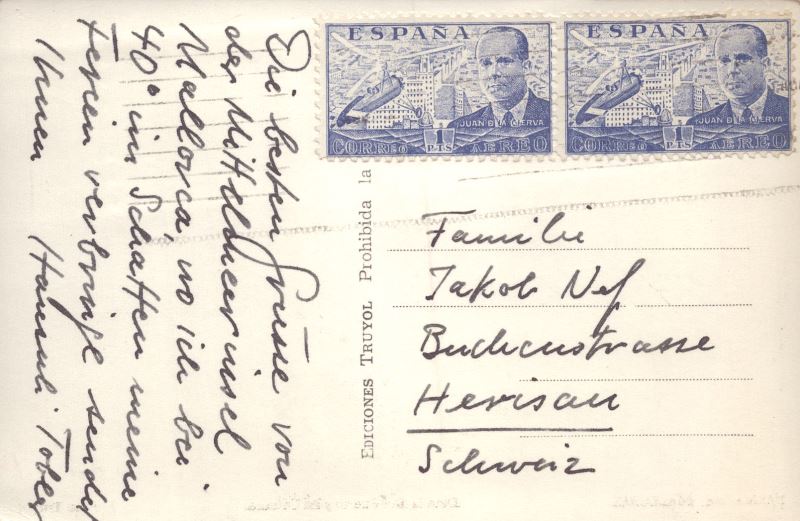 Die besten Grüsse von
der Mittelmeerinsel
Mallorca, wo ich bei
40° im Schatten meine
Ferien verbringe sendet
Ihnen Hansueli Tobler
ESPAÑA
JUAN DE LA CIERVA
1 PTS
CORREO AEREO
ESPAÑA
JUAN DE LA CIERVA
1 PTS
CORREO AEREO
EDICIONES TRUYOL Prohibida la
Familie
Jakob Nef
Buchenstrasse
Herisau
Schweiz